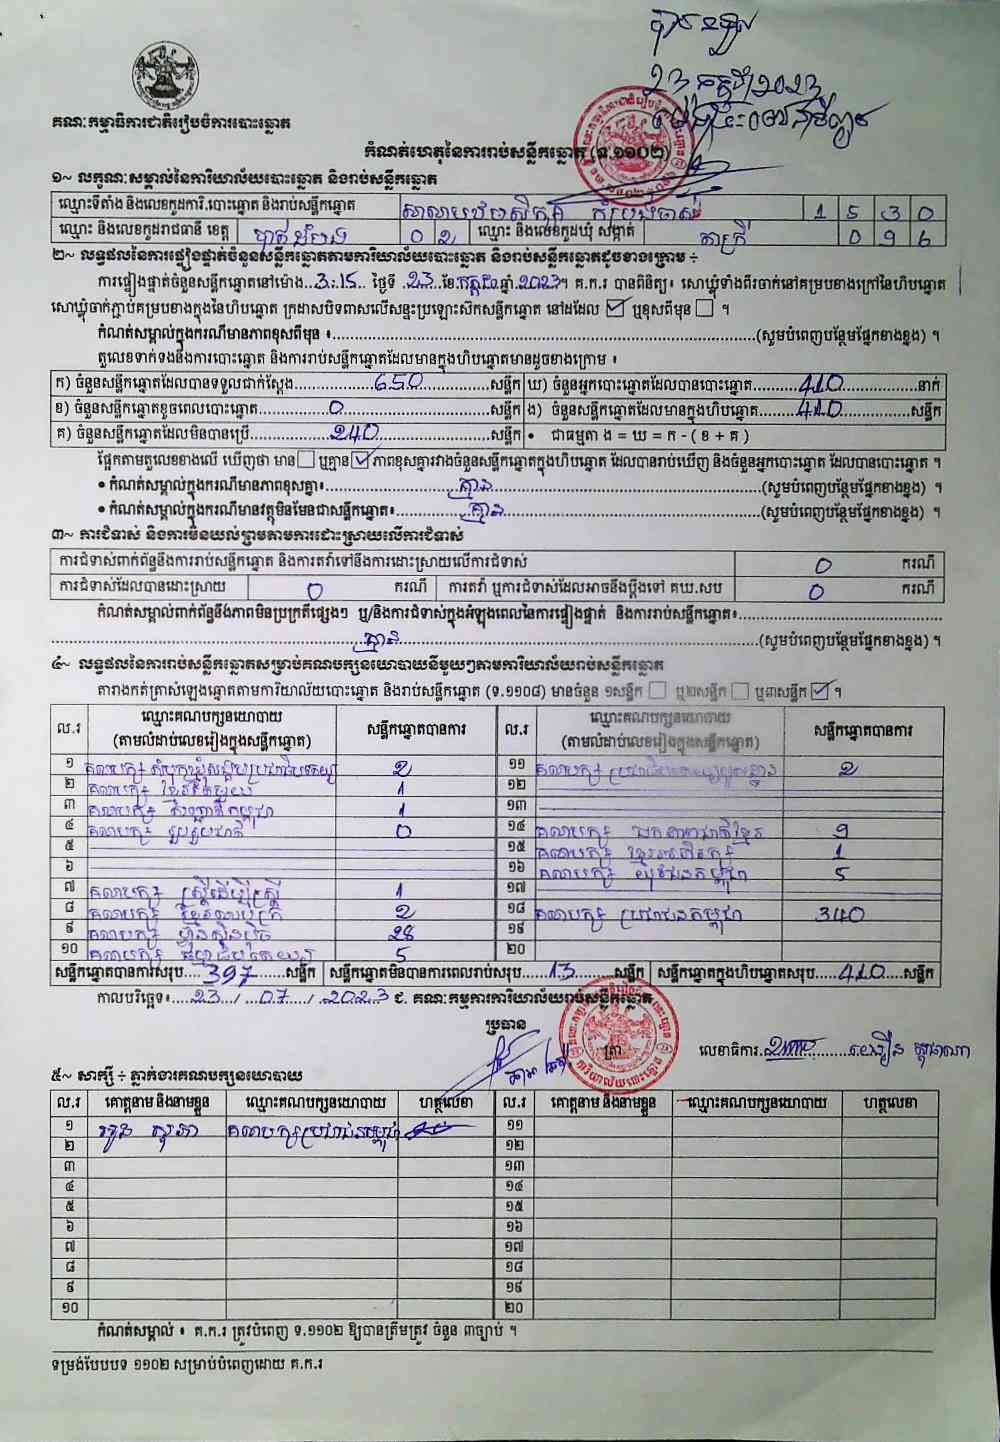 បានទទួល
23 កក្កដា 2023
គណៈកម្មាធិការជាតិរៀបចំការបោះឆ្នោត
កំណត់ហេតុនៃការរាប់សន្លឹកឆ្នោត (ទ.១១០២)
១~ លក្ខណៈសម្គាល់នៃការិយាល័យបោះឆ្នោត និងរាប់សន្លឹកឆ្នោត
ឈ្មោះទីតាំង និងលេខកូដការិ.បោះឆ្នោត និងរាប់សន្លឹកឆ្នោត សាលាបឋមសិក្សា កំប្រងចាស់ 1 5 3 0
ឈ្មោះ និងលេខកូដរាជធានី ខេត្ត បាត់ដំបង 0 2 ឈ្មោះ និងលេខកូដឃុំ សង្កាត់ តាក្រី 0 9 6
២~ លទ្ធផលនៃការផ្ទៀងផ្ទាត់ចំនួនសន្លឹកឆ្នោតតាមការិយាល័យបោះឆ្នោត និងរាប់សន្លឹកឆ្នោតដូចខាងក្រោម ÷
ការផ្ទៀងផ្ទាត់ចំនួនសន្លឹកឆ្នោតនៅម៉ោង...3:15... ថ្ងៃទី .23. ខែ.កក្កដា.ឆ្នាំ.2023។ គ.ក.រ បានពិនិត្យ៖ សោឃ្លុំទាំងពីរចាក់នៅគម្របខាងក្រៅនៃហិបឆ្នោត
សោឃ្លុំចាក់ភ្ជាប់គម្របខាងក្នុងនៃហិបឆ្នោត ក្រដាសបិទពាសលើសន្ទះប្រឡោះស៊កសន្លឹកឆ្នោត នៅដដែល ☑ ឬខុសពីមុន ☐ ។
កំណត់សម្គាល់ក្នុងករណីមានភាពខុសពីមុន ៖......(សូមបំពេញបន្ថែមផ្នែកខាងខ្នង) ។
តួលេខទាក់ទងនឹងការបោះឆ្នោត និងការរាប់សន្លឹកឆ្នោតដែលមានក្នុងហិបឆ្នោតមានដូចខាងក្រោម ៖
ក) ចំនួនសន្លឹកឆ្នោតដែលបានទទួលជាក់ស្តែង......650......សន្លឹក ឃ) ចំនួនអ្នកបោះឆ្នោតដែលបានបោះឆ្នោត......410......នាក់
ខ) ចំនួនសន្លឹកឆ្នោតខូចពេលបោះឆ្នោត......0......សន្លឹក ង) ចំនួនសន្លឹកឆ្នោតដែលមានក្នុងហិបឆ្នោត......410......សន្លឹក
គ) ចំនួនសន្លឹកឆ្នោតដែលមិនបានប្រើ......240......សន្លឹក • ជាធម្មតា ង = ឃ = ក - ( ខ + គ )
ផ្អែកតាមតួលេខខាងលើ ឃើញថា មាន ☐ ឬគ្មាន ☑ ភាពខុសគ្នារវាងចំនួនសន្លឹកឆ្នោតក្នុងហិបឆ្នោត ដែលបានរាប់ឃើញ និងចំនួនអ្នកបោះឆ្នោត ដែលបានបោះឆ្នោត ។
• កំណត់សម្គាល់ក្នុងករណីមានភាពខុសគ្នា៖......គ្មាន......(សូមបំពេញបន្ថែមផ្នែកខាងខ្នង) ។
• កំណត់សម្គាល់ក្នុងករណីមានវត្ថុមិនមែនជាសន្លឹកឆ្នោត៖......គ្មាន......(សូមបំពេញបន្ថែមផ្នែកខាងខ្នង) ។
៣~ ការជំទាស់ និងការមិនយល់ព្រមតាមការដោះស្រាយលើការជំទាស់
ការជំទាស់ពាក់ព័ន្ធនឹងការរាប់សន្លឹកឆ្នោត និងការតវ៉ាទៅនឹងការដោះស្រាយលើការជំទាស់ 0 ករណី
ការជំទាស់ដែលបានដោះស្រាយ 0 ករណី ការតវ៉ា ឬការជំទាស់ដែលអាចនឹងប្តឹងទៅ គឃ.សប 0 ករណី
កំណត់សម្គាល់ពាក់ព័ន្ធនឹងភាពមិនប្រក្រតីផ្សេងៗ ឬ/និងការជំទាស់ក្នុងអំឡុងពេលនៃការផ្ទៀងផ្ទាត់ និងការរាប់សន្លឹកឆ្នោត៖......
......គ្មាន......(សូមបំពេញបន្ថែមផ្នែកខាងខ្នង) ។
៤~ លទ្ធផលនៃការរាប់សន្លឹកឆ្នោតសម្រាប់គណបក្សនយោបាយនីមួយៗតាមការិយាល័យរាប់សន្លឹកឆ្នោត
តារាងកត់ត្រាសំឡេងឆ្នោតតាមការិយាល័យបោះឆ្នោត និងរាប់សន្លឹកឆ្នោត (ទ.១១០៨) មានចំនួន ១សន្លឹក ☐ ឬ២សន្លឹក ☐ ឬ៣សន្លឹក ☑ ។
ល.រ ឈ្មោះគណបក្សនយោបាយ (តាមលំដាប់លេខរៀងក្នុងសន្លឹកឆ្នោត) សន្លឹកឆ្នោតបានការ ល.រ ឈ្មោះគណបក្សនយោបាយ (តាមលំដាប់លេខរៀងក្នុងសន្លឹកឆ្នោត) សន្លឹកឆ្នោតបានការ
១ គណបក្ស សំបុកឃ្មុំសង្គមប្រជាធិបតេយ្យ 2 ១១ គណបក្ស ប្រជាធិបតេយ្យមូលដ្ឋាន 2
២ គណបក្ស ខ្មែរតែមួយ 1 ១២
៣ គណបក្ស កម្ពុជា 1 ១៣
៤ គណបក្ស រួបរួមជាតិ 0 ១៤ គណបក្ស ឯកភាពជាតិខ្មែរ 9
៥ ១៥ គណបក្ស ខ្មែរអភិរក្ស 1
៦ ១៦ គណបក្ស យុវជនកម្ពុជា 5
៧ គណបក្ស ស្ត្រីដើម្បីស្ត្រី 1 ១៧
៨ គណបក្ស ខ្មែរឈប់ក្រ 2 ១៨ គណបក្ស ប្រជាជនកម្ពុជា 340
៩ គណបក្ស ហ៊្វុនស៊ិនប៉ិច 28 ១៩
១០ គណបក្ស ធម្មាធិបតេយ្យ 5 ២០
សន្លឹកឆ្នោតបានការសរុប....397....សន្លឹក សន្លឹកឆ្នោតមិនបានការពេលរាប់សរុប....13....សន្លឹក សន្លឹកឆ្នោតក្នុងហិបឆ្នោតសរុប....410....សន្លឹក
កាលបរិច្ឆេទ៖....23..../....07..../..2023 ជ. គណៈកម្មការការិយាល័យរាប់សន្លឹកឆ្នោត
ប្រធាន
ត្រា លេខាធិការ
៥~ សាក្សី ÷ ភ្នាក់ងារគណបក្សនយោបាយ
ល.រ គោត្តនាម និងនាមខ្លួន ឈ្មោះគណបក្សនយោបាយ ហត្ថលេខា ល.រ គោត្តនាម និងនាមខ្លួន ឈ្មោះគណបក្សនយោបាយ ហត្ថលេខា
១ គណបក្សប្រជាជនកម្ពុជា ១១
២ ១២
៣ ១៣
៤ ១៤
៥ ១៥
៦ ១៦
៧ ១៧
៨ ១៨
៩ ១៩
១០ ២០
កំណត់សម្គាល់ ៖ គ.ក.រ ត្រូវបំពេញ ទ.១១០២ ឱ្យបានត្រឹមត្រូវ ចំនួន ៣ច្បាប់ ។
ទម្រង់បែបបទ ១១០២ សម្រាប់បំពេញដោយ គ.ក.រ